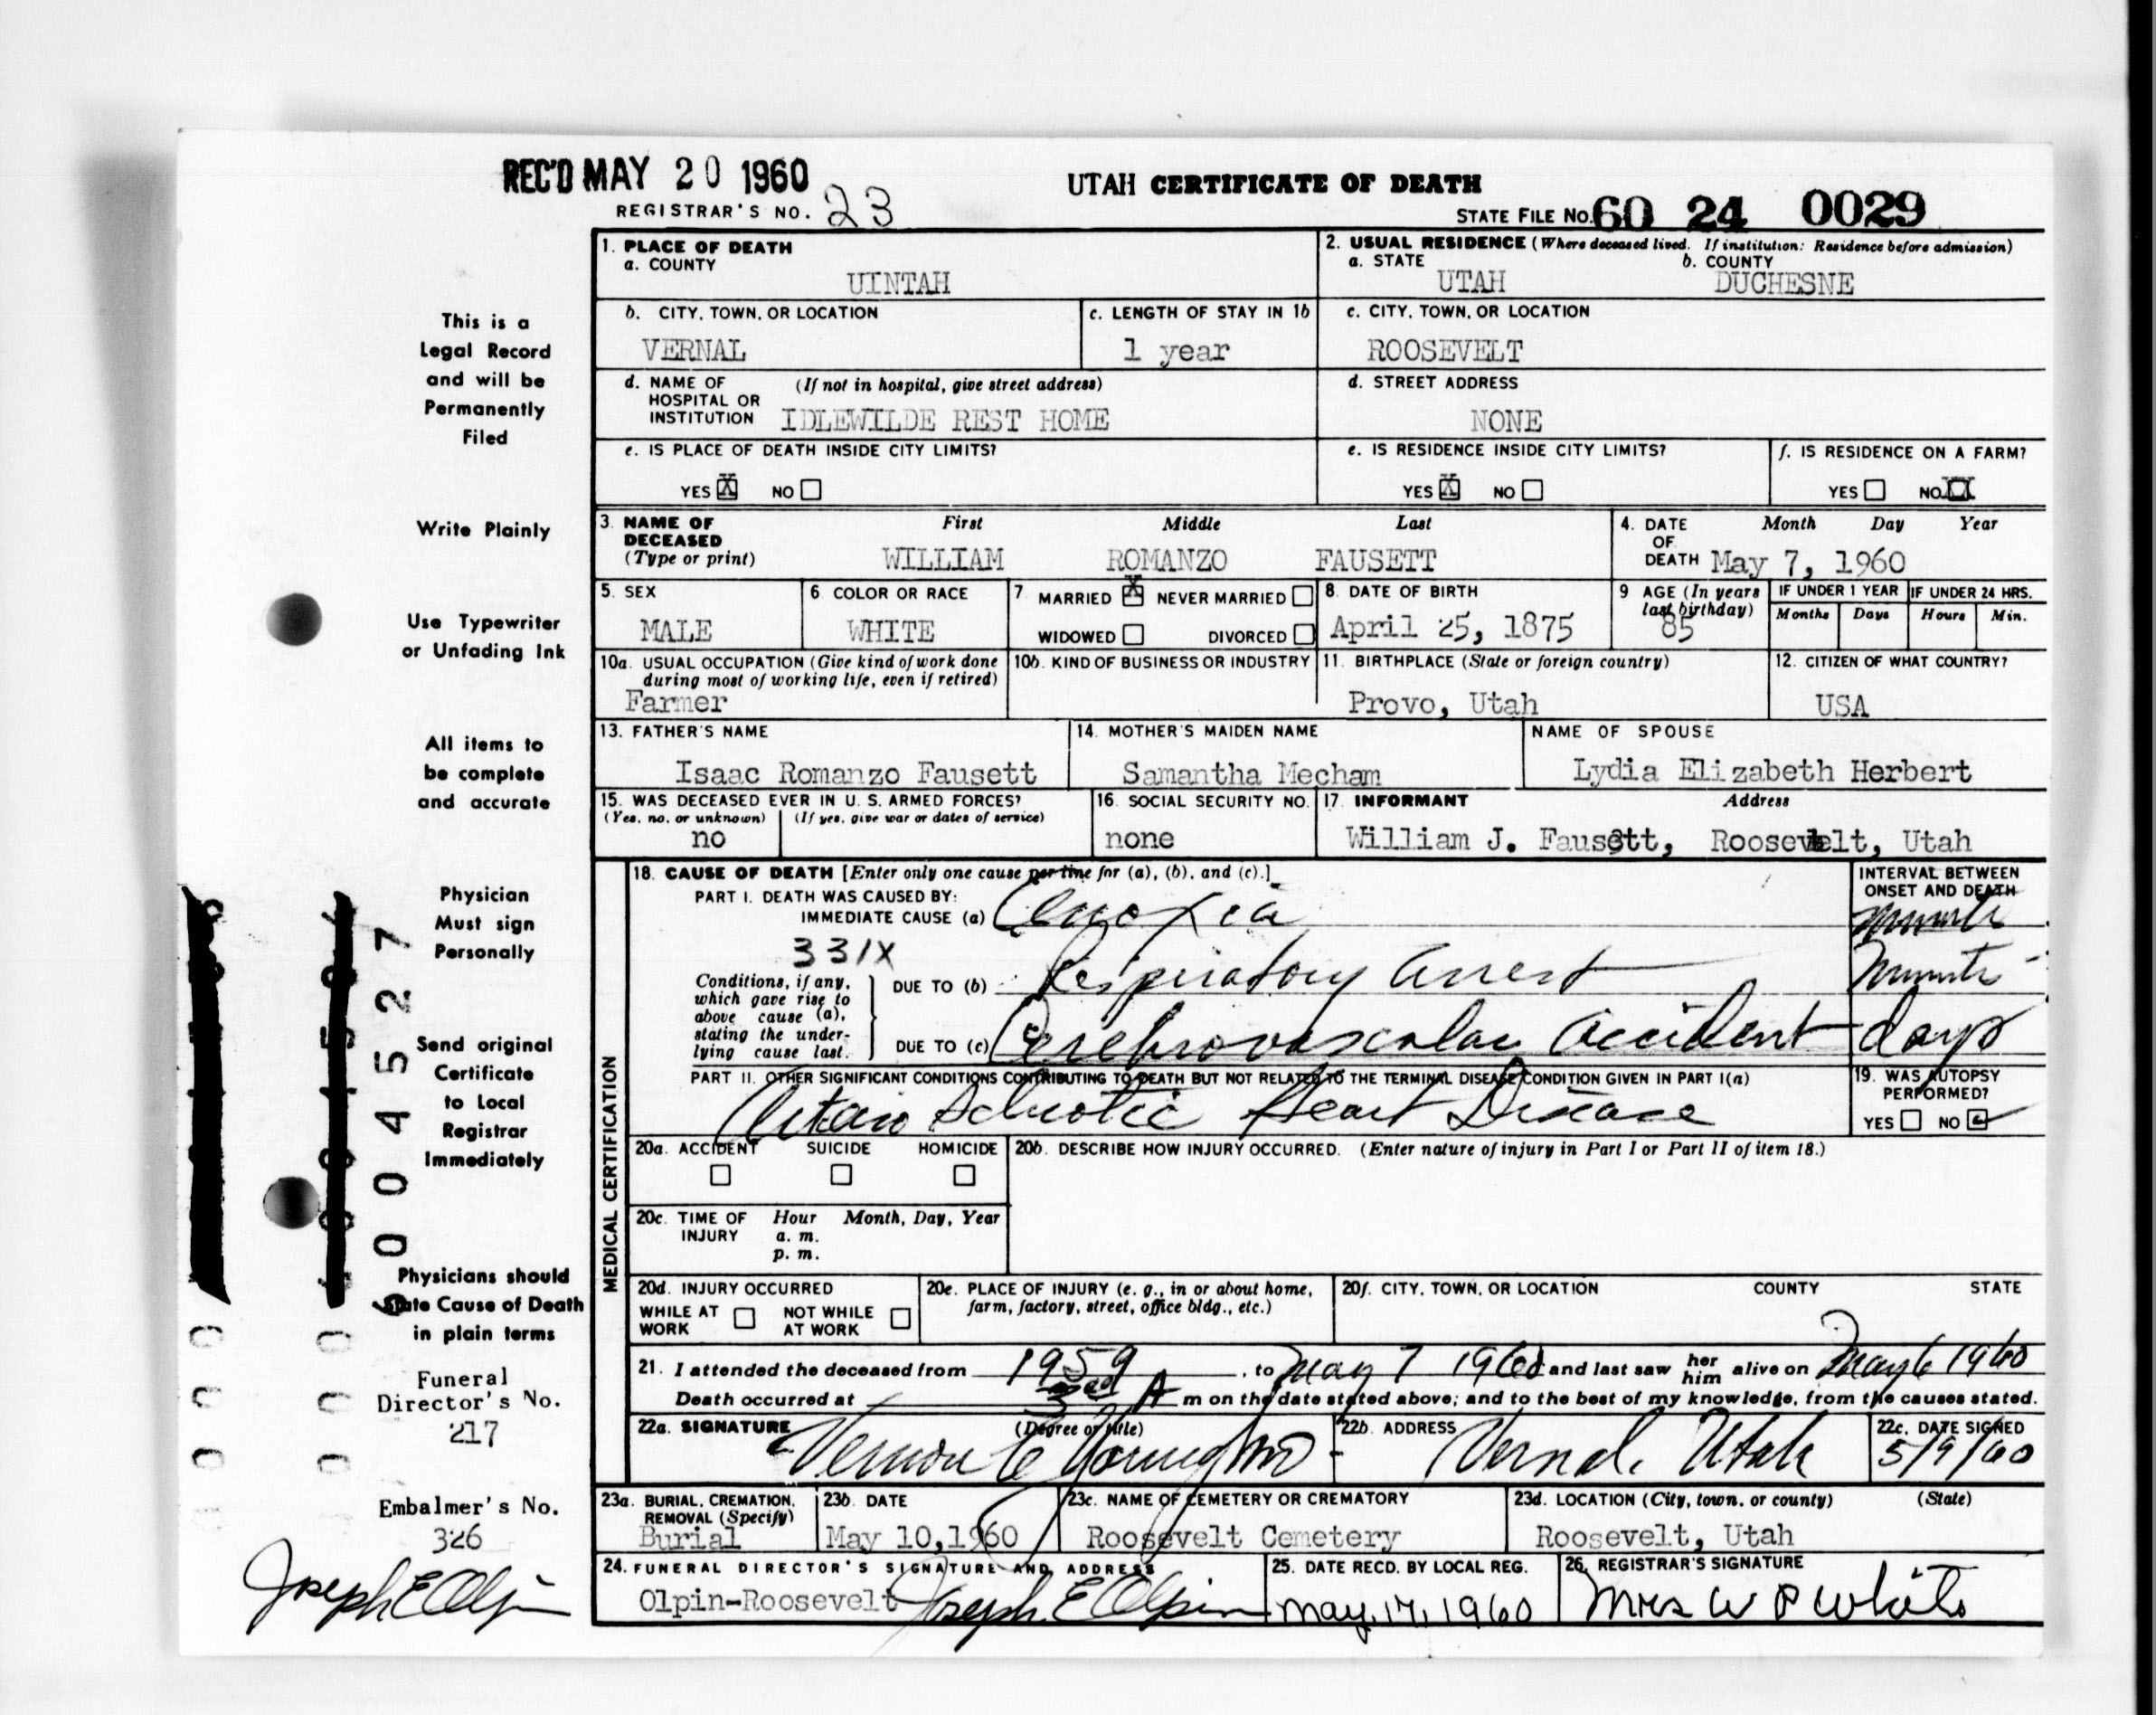 REC'D MAY 20 1960
UTAH CERTIFICATE OF DEATH
REGISTRAR'S NO. 23
STATE FILE NO. 60 24 0029
1. PLACE OF DEATH
a. COUNTY
UINTAH
2. USUAL RESIDENCE (Where deceased lived. If institution: Residence before admission)
a. STATE b. COUNTY
UTAH DUCHESNE
b. CITY, TOWN, OR LOCATION
VERNAL
c. LENGTH OF STAY IN 1b
1 year
c. CITY, TOWN, OR LOCATION
ROOSEVELT
d. NAME OF (If not in hospital, give street address)
HOSPITAL OR
INSTITUTION IDLEWILDE REST HOME
d. STREET ADDRESS
NONE
e. IS PLACE OF DEATH INSIDE CITY LIMITS?
YES X NO
e. IS RESIDENCE INSIDE CITY LIMITS?
YES X NO
f. IS RESIDENCE ON A FARM?
YES NO X
3. NAME OF First Middle Last
DECEASED
(Type or print) WILLIAM ROMANZO FAUSETT
4. DATE Month Day Year
OF
DEATH May 7, 1960
5. SEX
MALE
6. COLOR OR RACE
WHITE
7. MARRIED X NEVER MARRIED
WIDOWED DIVORCED
8. DATE OF BIRTH
April 25, 1875
9. AGE (In years
last birthday)
85
IF UNDER 1 YEAR
Months Days
IF UNDER 24 HRS.
Hours Min.
10a. USUAL OCCUPATION (Give kind of work done
during most of working life, even if retired)
Farmer
10b. KIND OF BUSINESS OR INDUSTRY
11. BIRTHPLACE (State or foreign country)
Provo, Utah
12. CITIZEN OF WHAT COUNTRY?
USA
13. FATHER'S NAME
Isaac Romanzo Fausett
14. MOTHER'S MAIDEN NAME
Samantha Mecham
NAME OF SPOUSE
Lydia Elizabeth Herbert
15. WAS DECEASED EVER IN U. S. ARMED FORCES?
(Yes, no, or unknown) (If yes, give war or dates of service)
no
16. SOCIAL SECURITY NO.
none
17. INFORMANT Address
William J. Fausett, Roosevelt, Utah
MEDICAL CERTIFICATION
18. CAUSE OF DEATH [Enter only one cause per line for (a), (b), and (c).]
PART I. DEATH WAS CAUSED BY:
IMMEDIATE CAUSE (a) Anoxia
331X
Conditions, if any,
which gave rise to
above cause (a),
stating the under-
lying cause last.
DUE TO (b) Respiratory Arrest
DUE TO (c) Cerebrovascular accident
INTERVAL BETWEEN
ONSET AND DEATH
days
PART II. OTHER SIGNIFICANT CONDITIONS CONTRIBUTING TO DEATH BUT NOT RELATED TO THE TERMINAL DISEASE CONDITION GIVEN IN PART I(a)
Heart Disease
19. WAS AUTOPSY
PERFORMED?
YES NO
20a. ACCIDENT SUICIDE HOMICIDE
20b. DESCRIBE HOW INJURY OCCURRED. (Enter nature of injury in Part I or Part II of item 18.)
20c. TIME OF Hour Month, Day, Year
INJURY a. m.
p. m.
20d. INJURY OCCURRED
WHILE AT NOT WHILE
WORK AT WORK
20e. PLACE OF INJURY (e. g., in or about home,
farm, factory, street, office bldg., etc.)
20f. CITY, TOWN, OR LOCATION COUNTY STATE
21. I attended the deceased from 1959, to May 7 1960 and last saw her him alive on May 6 1960
Death occurred at 3 A m on the date stated above; and to the best of my knowledge, from the causes stated.
22a. SIGNATURE (Degree or title)
Vernon C Young MD
22b. ADDRESS
Vernal, Utah
22c. DATE SIGNED
5/9/60
23a. BURIAL, CREMATION,
REMOVAL (Specify)
Burial
23b. DATE
May 10,1960
23c. NAME OF CEMETERY OR CREMATORY
Roosevelt Cemetery
23d. LOCATION (City, town, or county) (State)
Roosevelt, Utah
24. FUNERAL DIRECTOR'S SIGNATURE AND ADDRESS
Olpin-Roosevelt Joseph E Olpin
25. DATE RECD. BY LOCAL REG.
May, 17, 1960
26. REGISTRAR'S SIGNATURE
Mrs W P White
This is a
Legal Record
and will be
Permanently
Filed
Write Plainly
Use Typewriter
or Unfading Ink
All items to
be complete
and accurate
Physician
Must sign
Personally
Send original
Certificate
to Local
Registrar
Immediately
Physicians should
State Cause of Death
in plain terms
Funeral
Director's No.
217
Embalmer's No.
326
Joseph E Olpin
6004527